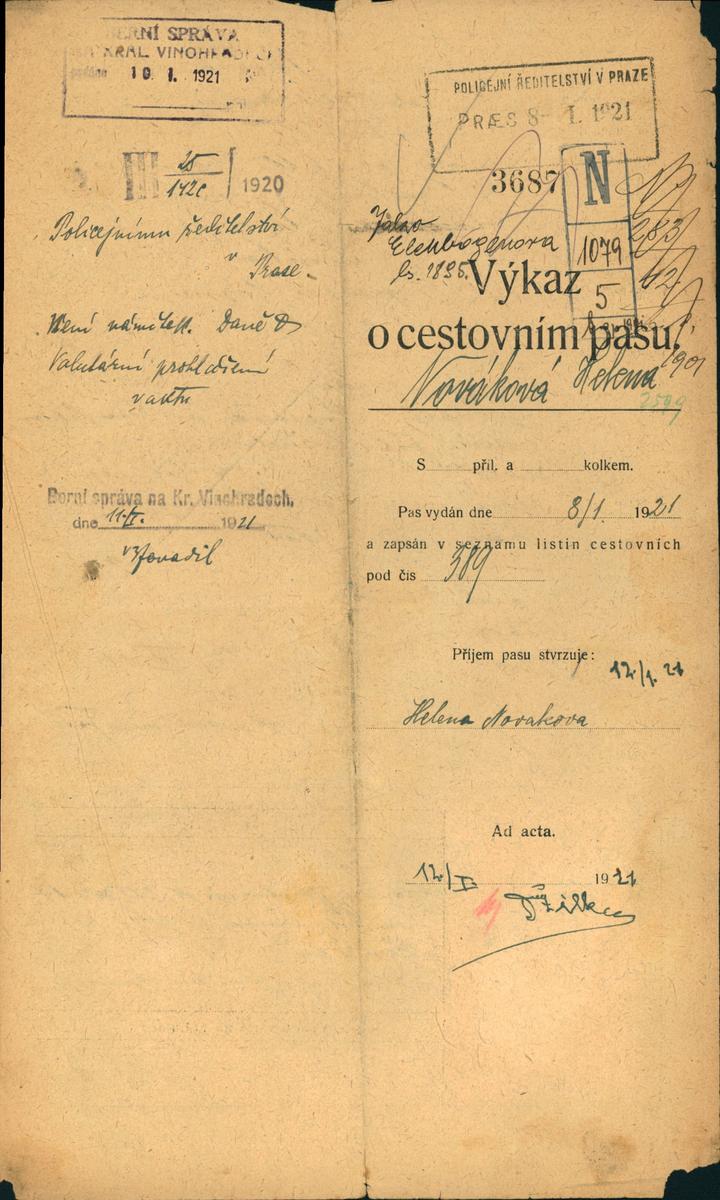 BERNÍ SPRÁVA
KRÁL. VINOHRADECH
podáno 10. I. 1921
III 25/142c 1920
Policejnímu ředitelství
v
Praze.
Není námitek. Daně
Valutární prohlášení
v aktu
Berní správa na Kr. Vinohradech,
dne 11./I. 1921
POLICEJNÍ ŘEDITELSTVÍ V PRAZE
PRÆS 8- I. 1921
3687
N
1079
5
Jako
Elenbogenova
čs. 1895.
Výkaz
o cestovním pasu.
Nováková Helena
1901
2509
S příl. a kolkem.
Pas vydán dne 8/1. 1921
a zapsán v seznamu listin cestovních
pod čís 389
Příjem pasu stvrzuje:
12/1. 21
Helena Novakova
Ad acta.
12/I. 1921